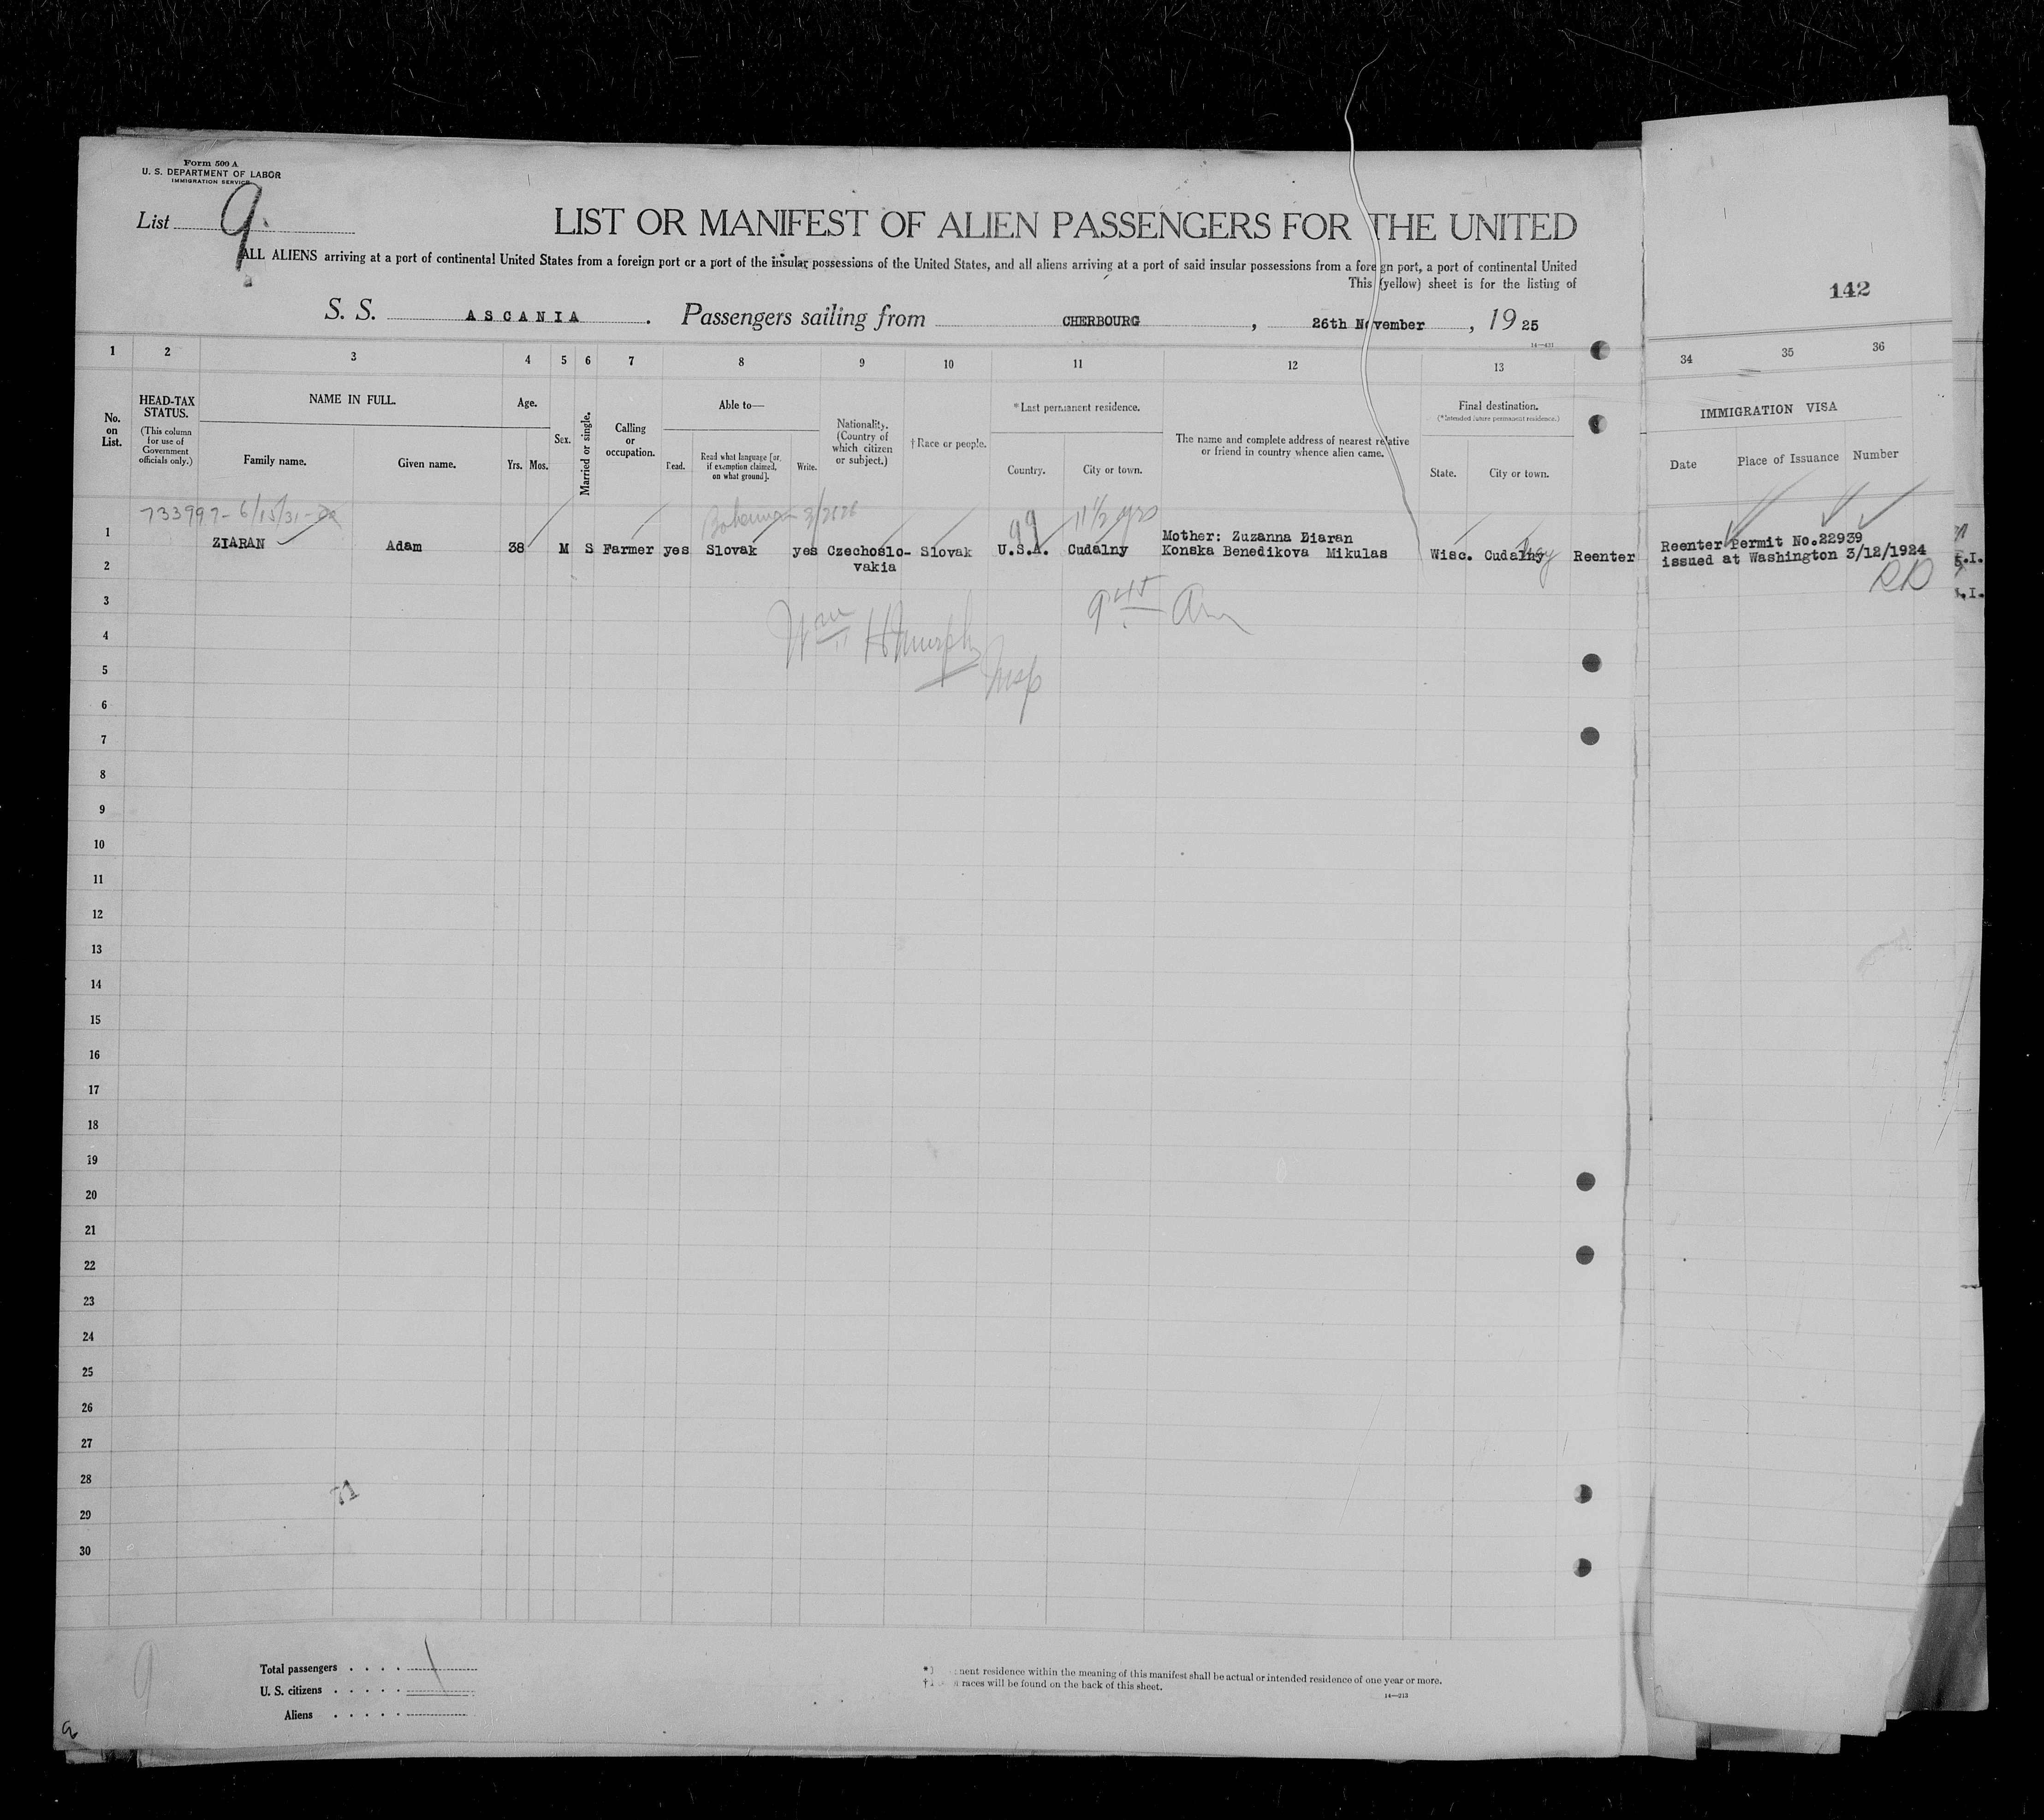 Form 500 A
U. S. DEPARTMENT OF LABOR
IMMIGRATION SERVICE
List 9.
LIST OR MANIFEST OF ALIEN PASSENGERS FOR THE UNITED
ALL ALIENS arriving at a port of continental United States from a foreign port or a port of the insular possessions of the United States, and all aliens arriving at a port of said insular possessions from a foreign port, a port of continental United
This (yellow) sheet is for the listing of
S. S. ASCANIA. Passengers sailing from CHERBOURG, 26th November, 1925
14—421
142
1 2 3 4 5 6 7 8 9 10 11 12 13
34 35 36
No. on List.
HEAD-TAX STATUS.
(This column for use of Government officials only.)
NAME IN FULL.
Family name. Given name.
Age.
Yrs. Mos.
Sex.
Married or single.
Calling or occupation.
Able to—
Read. Read what language [or, if exemption claimed, on what ground]. Write.
Nationality. (Country of which citizen or subject.)
†Race or people.
*Last permanent residence.
Country. City or town.
The name and complete address of nearest relative or friend in country whence alien came.
Final destination.
(*Intended future permanent residence.)
State. City or town.
IMMIGRATION VISA
Date Place of Issuance Number
733997- 6/15/31-
99 11½ yrs
1 ZIARAN Adam 38 M S Farmer yes Slovak yes Czechoslo- Slovak U.S.A. Cudalny Mother: Zuzanna Diaran Wisc. Cudalny Reenter Reenter Permit No.22939
vakia Konska Benedikova Mikulas issued at Washington 3/12/1924
RD
2 S.I.
3 S.I.
9 45 Am
4 Wm H Murphy
5 Insp
6
7
8
9
10
11
12
13
14
15
16
17
18
19
20
21
22
23
24
25
26
27
28
71
29
30
9
Total passengers . . . . 1
U. S. citizens . . . . .
Aliens . . . . .
nent residence within the meaning of this manifest shall be actual or intended residence of one year or more.
races will be found on the back of this sheet.
14—213